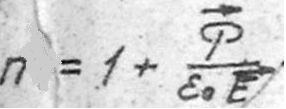 n = 1 + \frac{\vec{P}}{\varepsilon_0 \vec{E}}